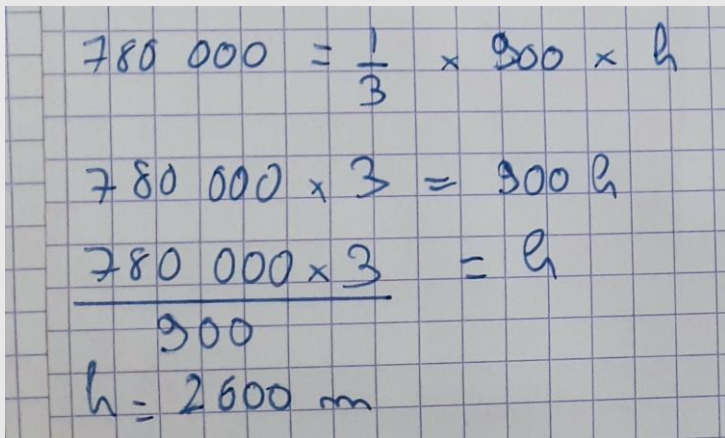 780 000 = 1/3 × 900 × h
780 000 × 3 = 900 h
780 000 × 3 / 900 = h
h = 2600 m